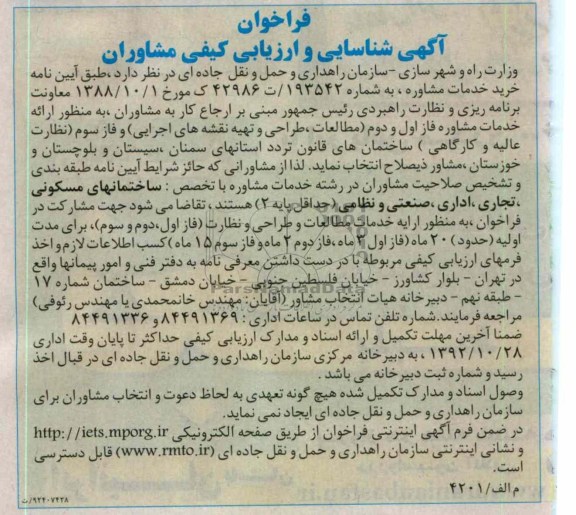 فراخوان
آگهی شناسایی و ارزیابی کیفی مشاوران
وزارت راه و شهر سازی -سازمان راهداری و حمل و نقل جاده ای در نظر دارد ،طبق آیین نامه
خرید خدمات مشاوره ، به شماره ۱۹۳۵۴۲/ت ۴۲۹۸۶ ک مورخ ۱۳۸۸/۱۰/۱ معاونت
برنامه ریزی و نظارت راهبردی رئیس جمهور مبنی بر ارجاع کار به مشاوران ،به منظور ارائه
خدمات مشاوره فاز اول و دوم (مطالعات ،طراحی و تهیه نقشه های اجرایی) و فاز سوم (نظارت
عالیه و کارگاهی ) ساختمان های قانون تردد استانهای سمنان ،سیستان و بلوچستان و
خوزستان ،مشاور ذیصلاح انتخاب نماید. لذا از مشاورانی که حائز شرایط آیین نامه طبقه بندی
و تشخیص صلاحیت مشاوران در رشته خدمات مشاوره با تخصص : ساختمانهای مسکونی
،تجاری ،اداری ،صنعتی و نظامی (حداقل پایه ۲) هستند ، تقاضا می شود جهت مشارکت در
فراخوان ،به منظور ارایه خدمات مطالعات و طراحی و نظارت (فاز اول ،دوم و سوم)، برای مدت
اولیه (حدود) ۲۰ ماه (فاز اول ۳ ماه ،فاز دوم ۲ ماه و فاز سوم ۱۵ ماه) کسب اطلاعات لازم و اخذ
فرمهای ارزیابی کیفی مربوطه با در دست داشتن معرفی نامه به دفتر فنی و امور پیمانها واقع
در تهران - بلوار کشاورز - خیابان فلسطین جنوبی - خیابان دمشق - ساختمان شماره ۱۷
- طبقه نهم - دبیرخانه هیات انتخاب مشاور (آقایان: مهندس خانمحمدی یا مهندس رئوفی)
مراجعه فرمایند.شماره تلفن تماس در ساعات اداری : ۸۴۴۹۱۳۶۹ و ۸۴۴۹۱۳۳۶
ضمنا آخرین مهلت تکمیل و ارائه اسناد و مدارک ارزیابی کیفی حداکثر تا پایان وقت اداری
۱۳۹۲/۱۰/۲۸ ، به دبیرخانه مرکزی سازمان راهداری و حمل و نقل جاده ای در قبال اخذ
رسید و شماره ثبت دبیرخانه می باشد .
وصول اسناد و مدارک تکمیل شده هیچ گونه تعهدی به لحاظ دعوت و انتخاب مشاوران برای
سازمان راهداری و حمل و نقل جاده ای ایجاد نمی نماید.
در ضمن فرم آگهی اینترنتی فراخوان از طریق صفحه الکترونیکی http://iets.mporg.ir
و نشانی اینترنتی سازمان راهداری و حمل و نقل جاده ای (www.rmto.ir) قابل دسترسی
است.
م الف/۴۲۰۱
۹۲۴۰۷۲۲۸/ت